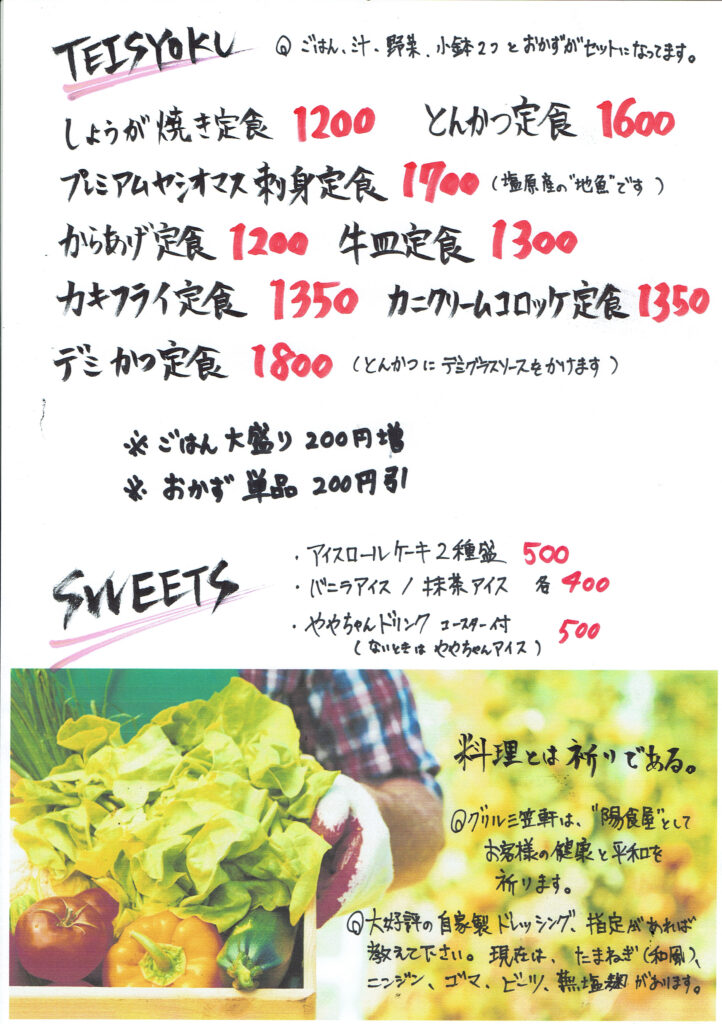 TEISYOKU ごはん、汁、野菜、小鉢2つとおかずがセットになってます。
しょうが焼き定食 1200 とんかつ定食 1600
プレミアムヤシオマス刺身定食 1700 (塩原産の"地魚"です)
からあげ定食 1200 牛皿定食 1300
カキフライ定食 1350 カニクリームコロッケ定食 1350
デミかつ定食 1800 (とんかつにデミグラスソースをかけます)
※ごはん大盛り 200円増
※おかず単品 200円引
SWEETS
・アイスロールケーキ2種盛 500
・バニラアイス / 抹茶アイス 各400
・ややちゃんドリンク コースター付 500
(ないときはややちゃんアイス)
料理とは祈りである。
グリル三笠軒は、"陽食屋"として
お客様の健康と平和を
祈ります。
大好評の自家製ドレッシング、指定があれば
教えて下さい。現在は、たまねぎ(和風)、
ニンジン、ゴマ、ビーツ、無塩麹があります。